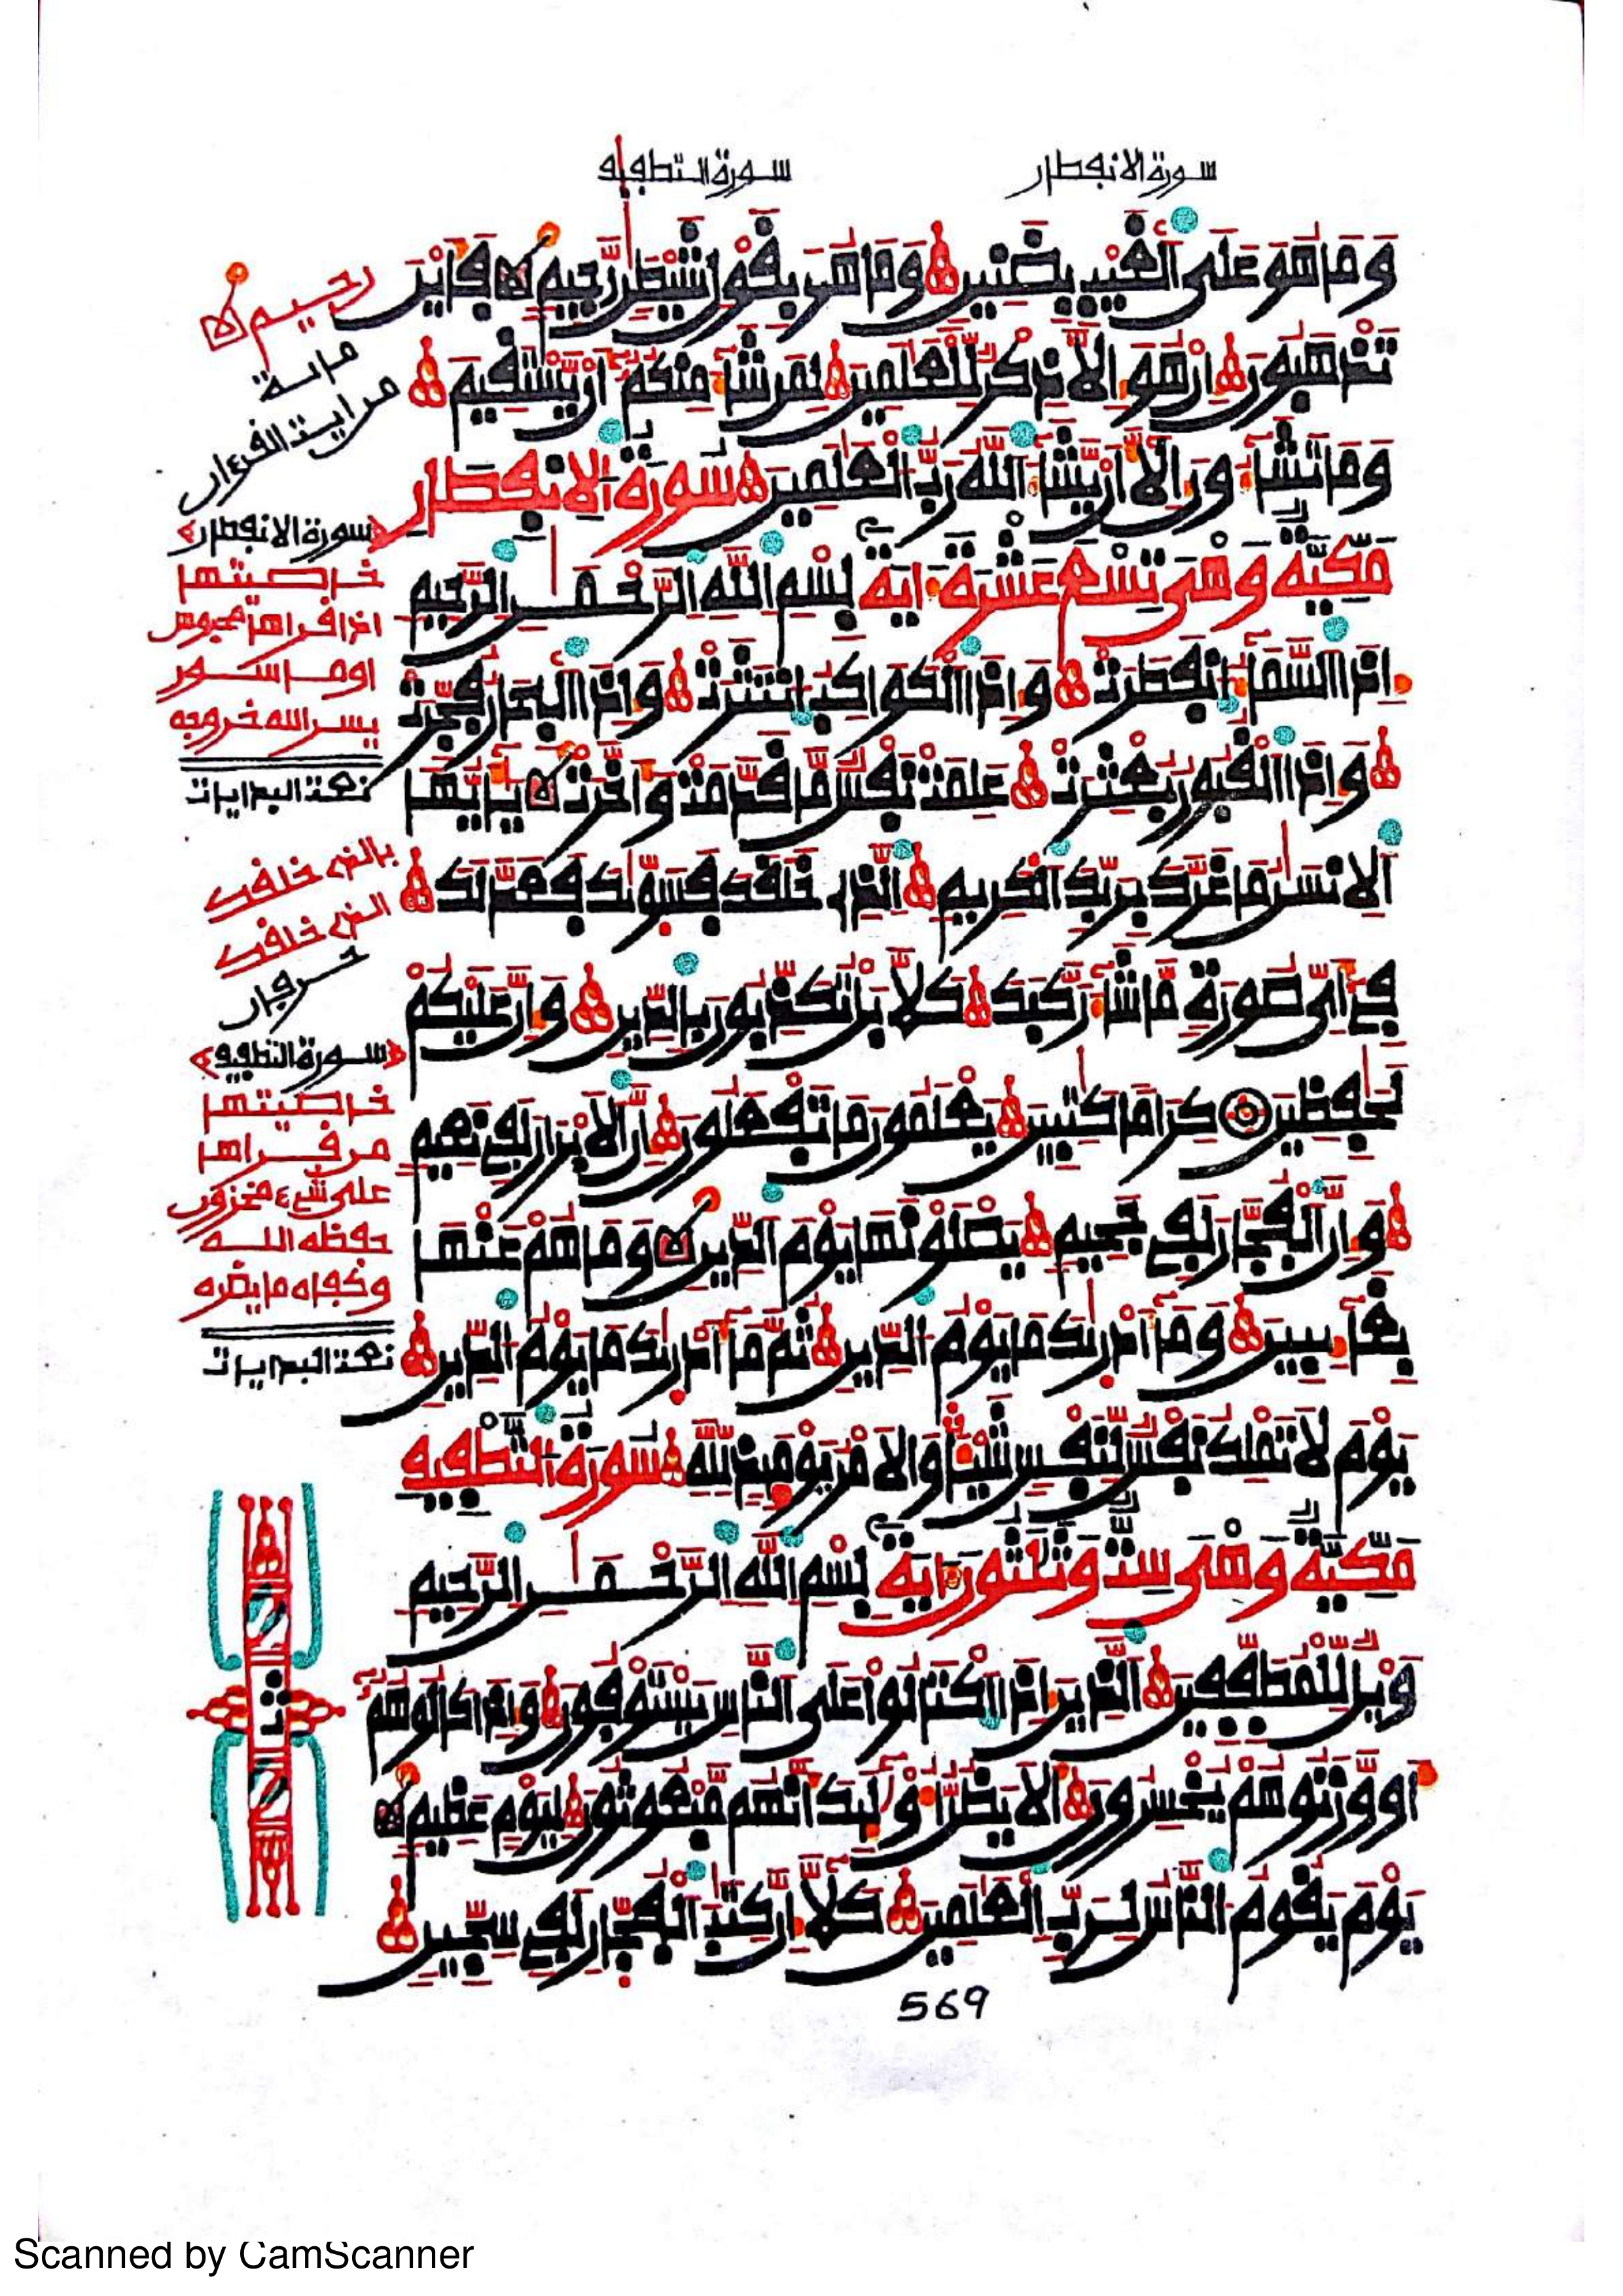 سورة الانفطار
سورة التطفيف
وَمَا هُوَ عَلَى اَ۬لْغَيْبِ بِضَنِينٍ وَمَا هُوَ بِقَوْلِ شَيْطَٰنٍ رَّجِيمٍ فَأَيْنَ
تَذْهَبُونَ إِنْ هُوَ إِلَّا ذِكْرٌ لِّلْعَٰلَمِينَ لِمَن شَآءَ مِنكُمُۥٓ أَنْ يَّسْتَقِيمَ
وَمَا تَشَآءُونَ إِلَّا أَنْ يَّشَآءَ اَ۬للَّهُ رَبُّ اُ۬لْعَٰلَمِينَ سُورَةُ اُ۬لِانفِطَارِ
مَكِّيَّةٌ وَهْيَ تِسْعَ عَشْرَةَ ءَايَةً بِسْمِ اِ۬للَّهِ اِ۬لرَّحْمَٰنِ اِ۬لرَّحِيمِ
إِذَا اَ۬لسَّمَآءُ اُ۪نفَطَرَتْ وَإِذَا اَ۬لْكَوَاكِبُ اُ۪نتَثَرَتْ وَإِذَا اَ۬لْبِحَارُ فُجِّرَتْ
وَإِذَا اَ۬لْقُبُورُ بُعْثِرَتْ عَلِمَتْ نَفْسٌ مَّا قَدَّمَتْ وَأَخَّرَتْ يَٰٓأَيُّهَا
اَ۬لْإِنسَٰنُ مَا غَرَّكَ بِرَبِّكَ اَ۬لْكَرِيمِ اِ۬لذِے خَلَقَكَ فَسَوَّىٰكَ فَعَدَّلَكَ
فِےٓ أَيِّ صُورَةٍ مَّا شَآءَ رَكَّبَكَ كَلَّا بَلْ تُكَذِّبُونَ بِالدِّينِ وَإِنَّ عَلَيْكُمْ
لَحَٰفِظِينَ كِرَاماً كَٰتِبِينَ يَعْلَمُونَ مَا تَفْعَلُونَ إِنَّ اَ۬لْأَبْرَارَ لَفِے نَعِيمٍ
وَإِنَّ اَ۬لْفُجَّارَ لَفِے جَحِيمٍ يَصْلَوْنَهَا يَوْمَ اَ۬لدِّينِ وَمَا هُمْ عَنْهَا
بِغَآئِبِينَ وَمَآ أَدْرَىٰكَ مَا يَوْمُ اُ۬لدِّينِ ثُمَّ مَآ أَدْرَىٰكَ مَا يَوْمُ اُ۬لدِّينِ
يَوْمَ لَا تَمْلِكُ نَفْسٌ لِّنَفْسٍ شَيْـٔاً وَالْأَمْرُ يَوْمَئِذٍ لِّلَّهِ سُورَةُ اُ۬لتَّطْفِيفِ
مَكِّيَّةٌ وَهْيَ سِتٌّ وَثَلَٰثُونَ ءَايَةً بِسْمِ اِ۬للَّهِ اِ۬لرَّحْمَٰنِ اِ۬لرَّحِيمِ
وَيْلٌ لِّلْمُطَفِّفِينَ اَ۬لذِينَ إِذَا اَ۪كْتَالُواْ عَلَى اَ۬لنَّاسِ يَسْتَوْفُونَ وَإِذَا كَالُوهُمُۥٓ
أَو وَّزَنُوهُمْ يُخْسِرُونَ أَلَا يَظُنُّ أُوْلَٰٓئِكَ أَنَّهُم مَّبْعُوثُونَ لِيَوْمٍ عَظِيمٍ
يَوْمَ يَقُومُ اُ۬لنَّاسُ لِرَبِّ اِ۬لْعَٰلَمِينَ كَلَّا إِنَّ كِتَٰبَ اَ۬لْفُجَّارِ لَفِے سِجِّينٍ
569
رحيم
ماىة
من اية القرءان
سورة الانفطار
خاصيتها
اذا قراها محبوس
او ماسور
يسر الله خروجه
نعت البدايات
بالذى خلقك
الذى خلقك
حرفان
سورة التطفيف
خاصيتها
من قراها
على شيء مخزون
حفظه الله
وكفاه ما يضره
نعت البدايات
ث
Scanned by CamScanner